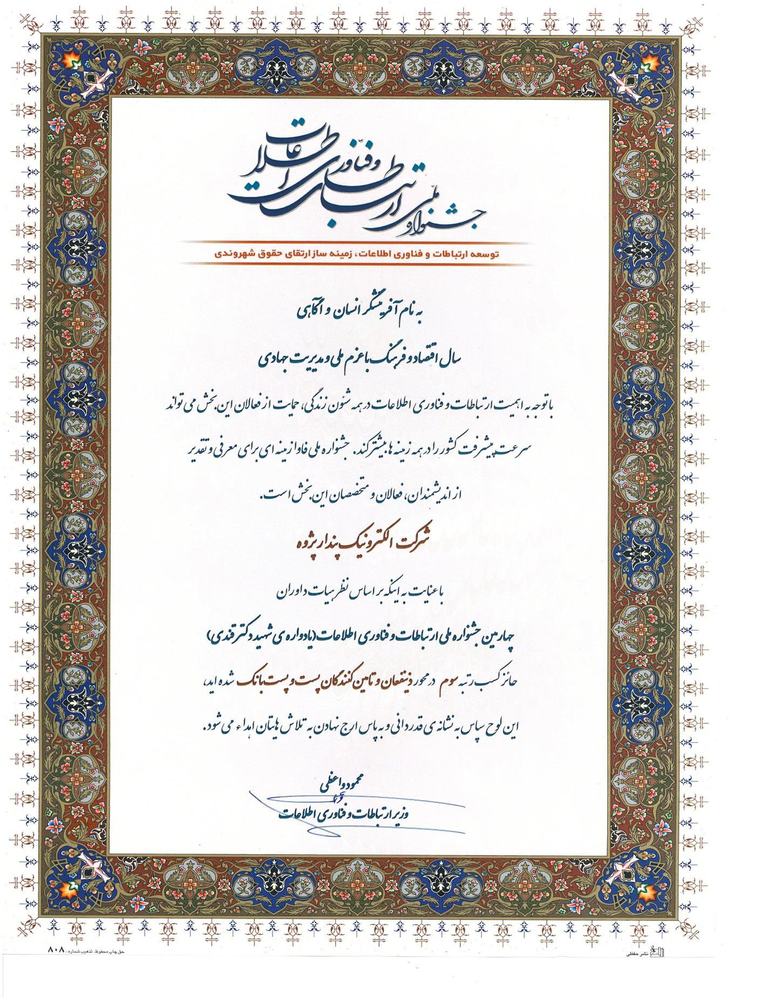 جشنواره ملی ارتباطات و فناوری اطلاعات
توسعه ارتباطات و فناوری اطلاعات، زمینه ساز ارتقای حقوق شهروندی
به نام آفرینشگر انسان و آگاهی
سال اقتصاد و فرهنگ با عزم ملی و مدیریت جهادی
با توجه به اهمیت ارتباطات و فناوری اطلاعات در همه شئون زندگی، حمایت از فعالان این بخش می تواند
سرعت پیشرفت کشور را در همه زمینه ها بیشتر کند. جشنواره ملی فاوا زمینه ای برای معرفی و تقدیر
از اندیشمندان، فعالان و متخصصان این بخش است.
شرکت الکترونیک پندار پژوه
با عنایت به اینکه بر اساس نظر هیات داوران
چهارمین جشنواره ملی ارتباطات و فناوری اطلاعات (یادواره ی شهید دکتر قندی)
حائز کسب رتبه سوم در محور ذینفعان و تامین کنندگان پست و پست بانک شده اید،
این لوح سپاس به نشانه ی قدردانی و به پاس ارج نهادن به تلاش هایتان اهداء می شود.
محمود واعظی
وزیر ارتباطات و فناوری اطلاعات
حق چاپ محفوظ، تذهیب شماره: ۸۰۸
نشر حفظی